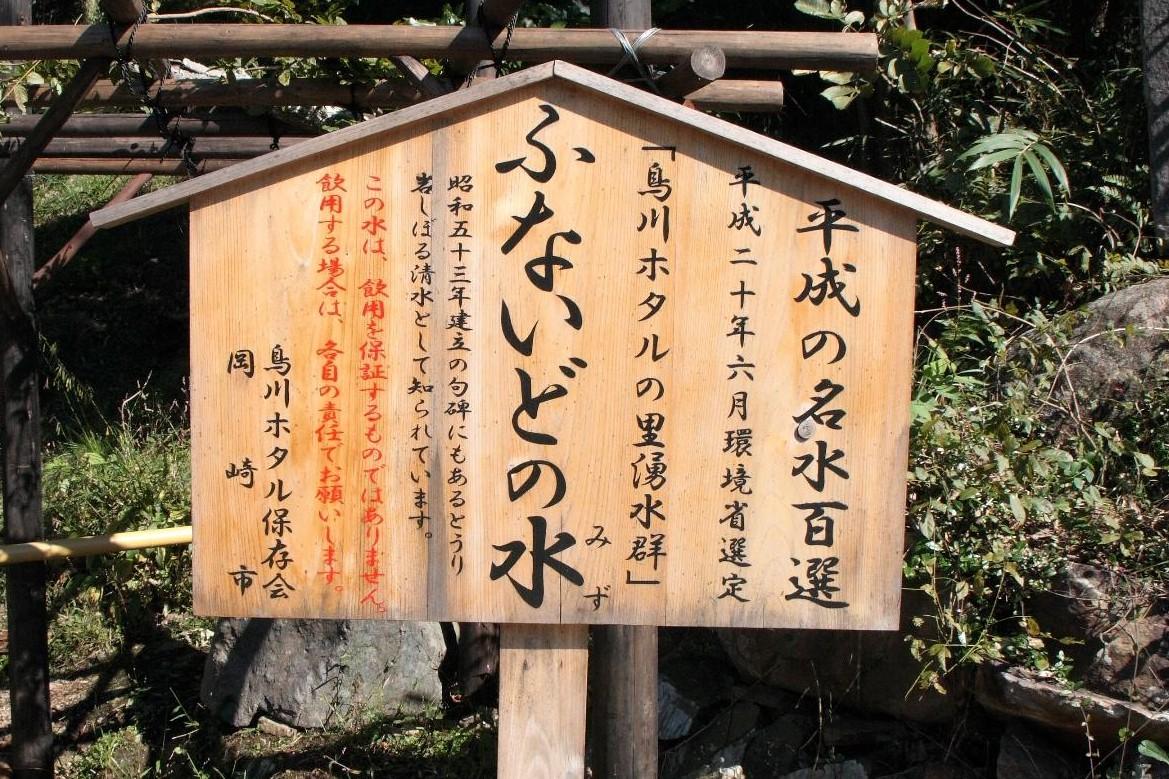 平成の名水百選
平成二十年六月環境省選定
「鳥川ホタルの里湧水群」
ふないどの水
みず
昭和五十三年建立の句碑にもあるとうり
岩しぼる清水として知られています。
この水は、飲用を保証するものではありません。
飲用する場合は、各自の責任でお願いします。
鳥川ホタル保存会
岡崎市